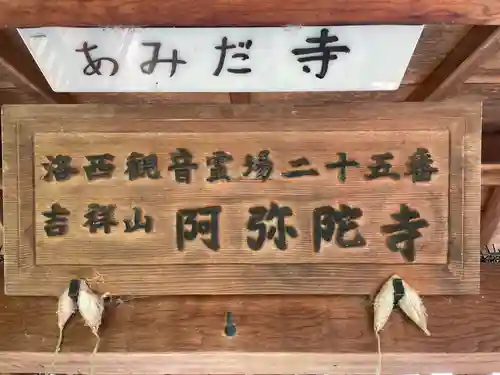 あみだ寺
洛西観音霊場二十五番
吉祥山阿弥陀寺